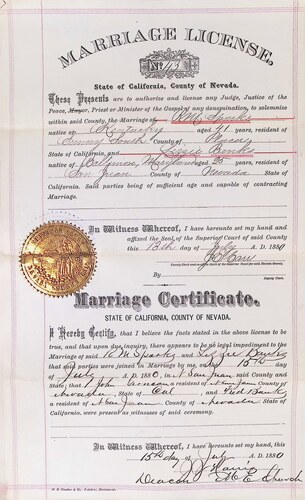 MARRIAGE LICENSE,
No 43
State of California, County of Nevada.
These Presents are to authorize and license any Judge, Justice of the
Peace, Mayor, Priest or Minister of the Gospel of any denomination, to solemnize
within said County, the Marriage of R M Sparks
native of Kentucky aged 41 years, resident of
Sunny South County of Placer
State of California and Lizzie Banks
native of Baltimore, Maryland aged 25 years, resident of
San Juan County of Nevada State of
California. Said parties being of sufficient age and capable of contracting
Marriage.
In Witness Whereof, I have hereunto set my hand and
affixed the Seal of the Superior Court of said County
this 13th day of July A. D. 1880
Marriage Certificate.
STATE OF CALIFORNIA, COUNTY OF NEVADA.
I Hereby Certify, that I believe the facts stated in the above license to be
true, and that upon due inquiry, there appears to be no legal impediment to the
Marriage of said R M Sparks and Lizzie Banks
that said parties were joined in Marriage by me, on 15th day of
July A. D. 1880 in San Juan said County and
State; that John resident of San Juan County of
Nevada, State of Cal and Fred Banks
a resident of San Juan County of Nevada State of
California, were present as witnesses of said ceremony.
In Witness Whereof, I have hereunto set my hand, this
15th day of July A. D. 1880
J Harris
Deacon M E Church